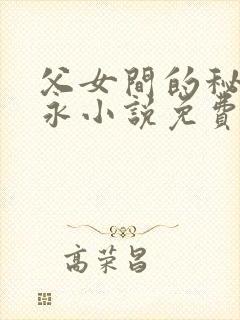 父女間的秘
永小説免費
高荣昌